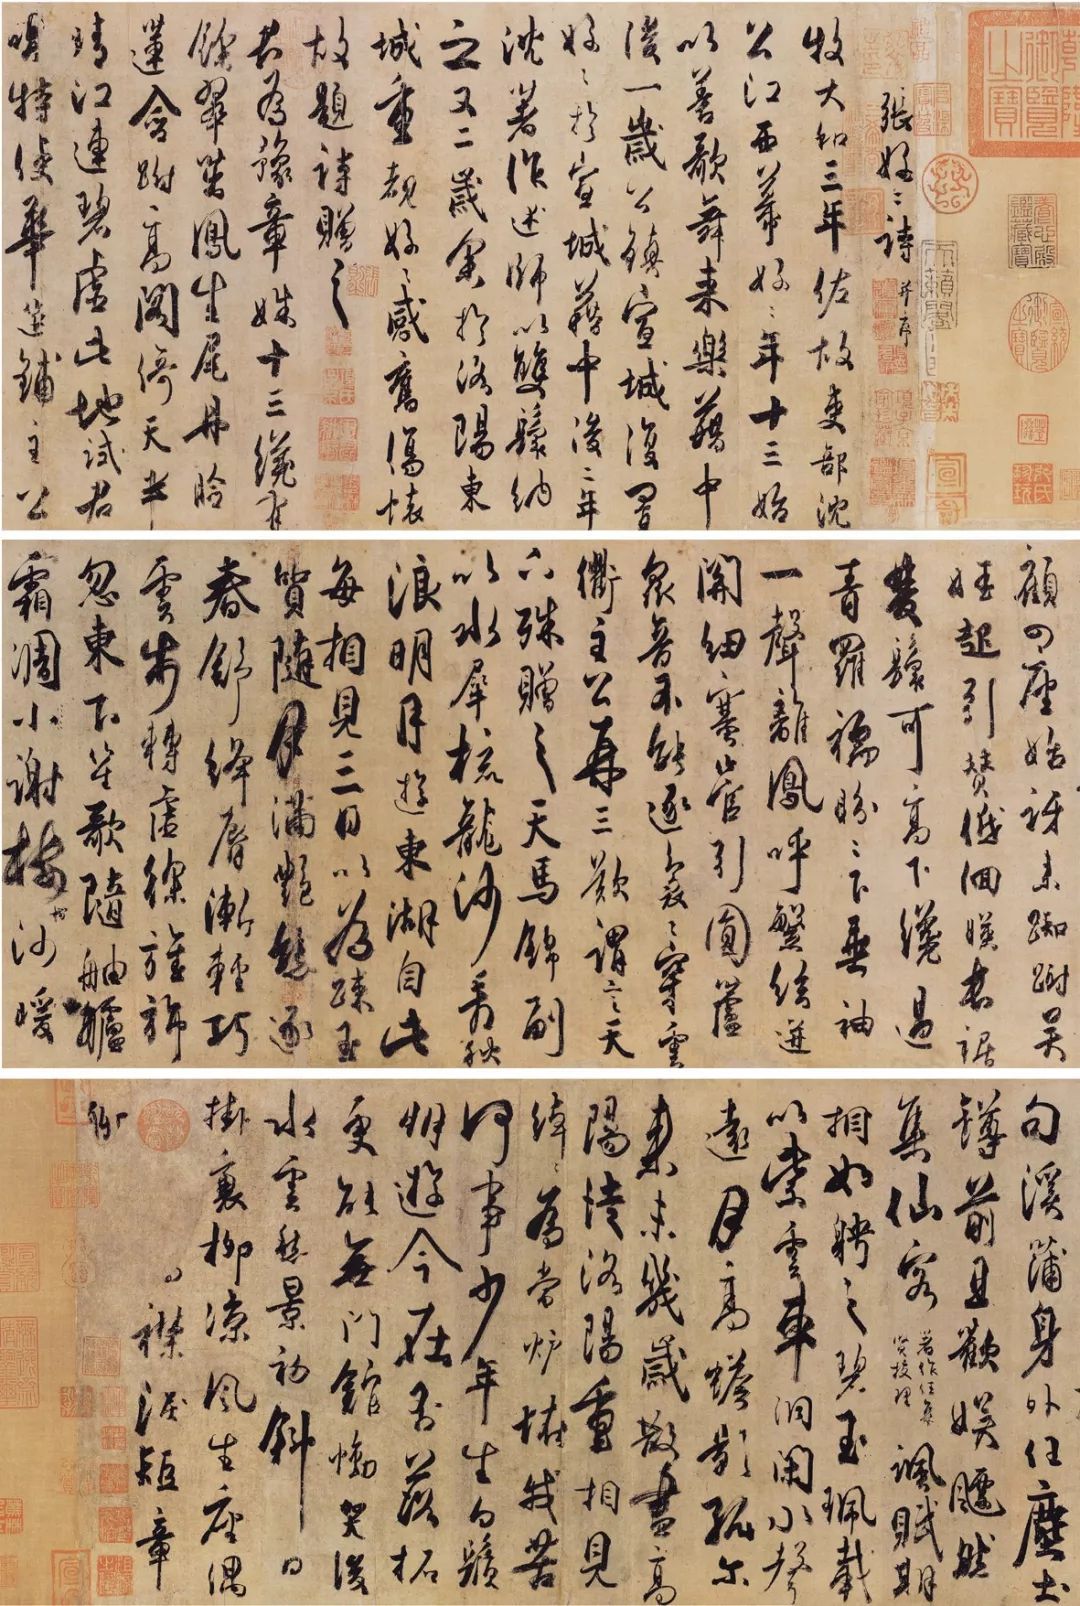 乾隆御覽之寶
養心殿鑑藏寶
宣統御覽之寶
天籟閣
張好〻詩并序
牧大和三年佐故吏部沈
公江西幕好〻年十三始
以善歌舞來樂籍中
後一歲公鎮宣城復置
好〻於宣城籍中後二年
沈著作述師以雙鬟納
之又二歲余於洛陽東
城重覩好〻感舊傷懷
故題詩贈之
君為豫章姝十三纔有
餘翠茁鳳生尾丹臉
蓮含跗高閣倚天半
晴江連碧虛此地試君
唱特使華筵鋪主公
顧四座始訝來踟躕吳
娃起引贊低佪映長裾
雙鬟可高下纔過
青羅襦盼〻下垂袖
一聲離鳳呼繁絃迸
關紐塞管引圓蘆
衆音不能逐裊〻穿雲
衢主公再三歎謂言天
下殊贈之天馬錦副
以水犀梳龍沙看秋
浪明月遊東湖自此
每相見三日以為疎玉
質隨月滿艷態逐
春舒絳脣漸輕巧
雲步轉虛徐旌旆
忽東下笙歌隨舳艫
霜凋小謝樓樹沙暖
句溪蒲身外任塵土
罇前且歡娛飄然
集仙客著作任集賢校理諷賦期
相如聘之碧玉珮載
以紫雲車洞閉水聲
遠月高蟾影孤爾
來未幾歲散盡高
陽徒洛陽重相見
綽〻為當爐怪我苦
何事少年生白鬚
朋遊今在否落拓
更能無門館慟哭後
水雲愁景初斜日
掛衰柳涼風生座隅
襟淚短章
聊